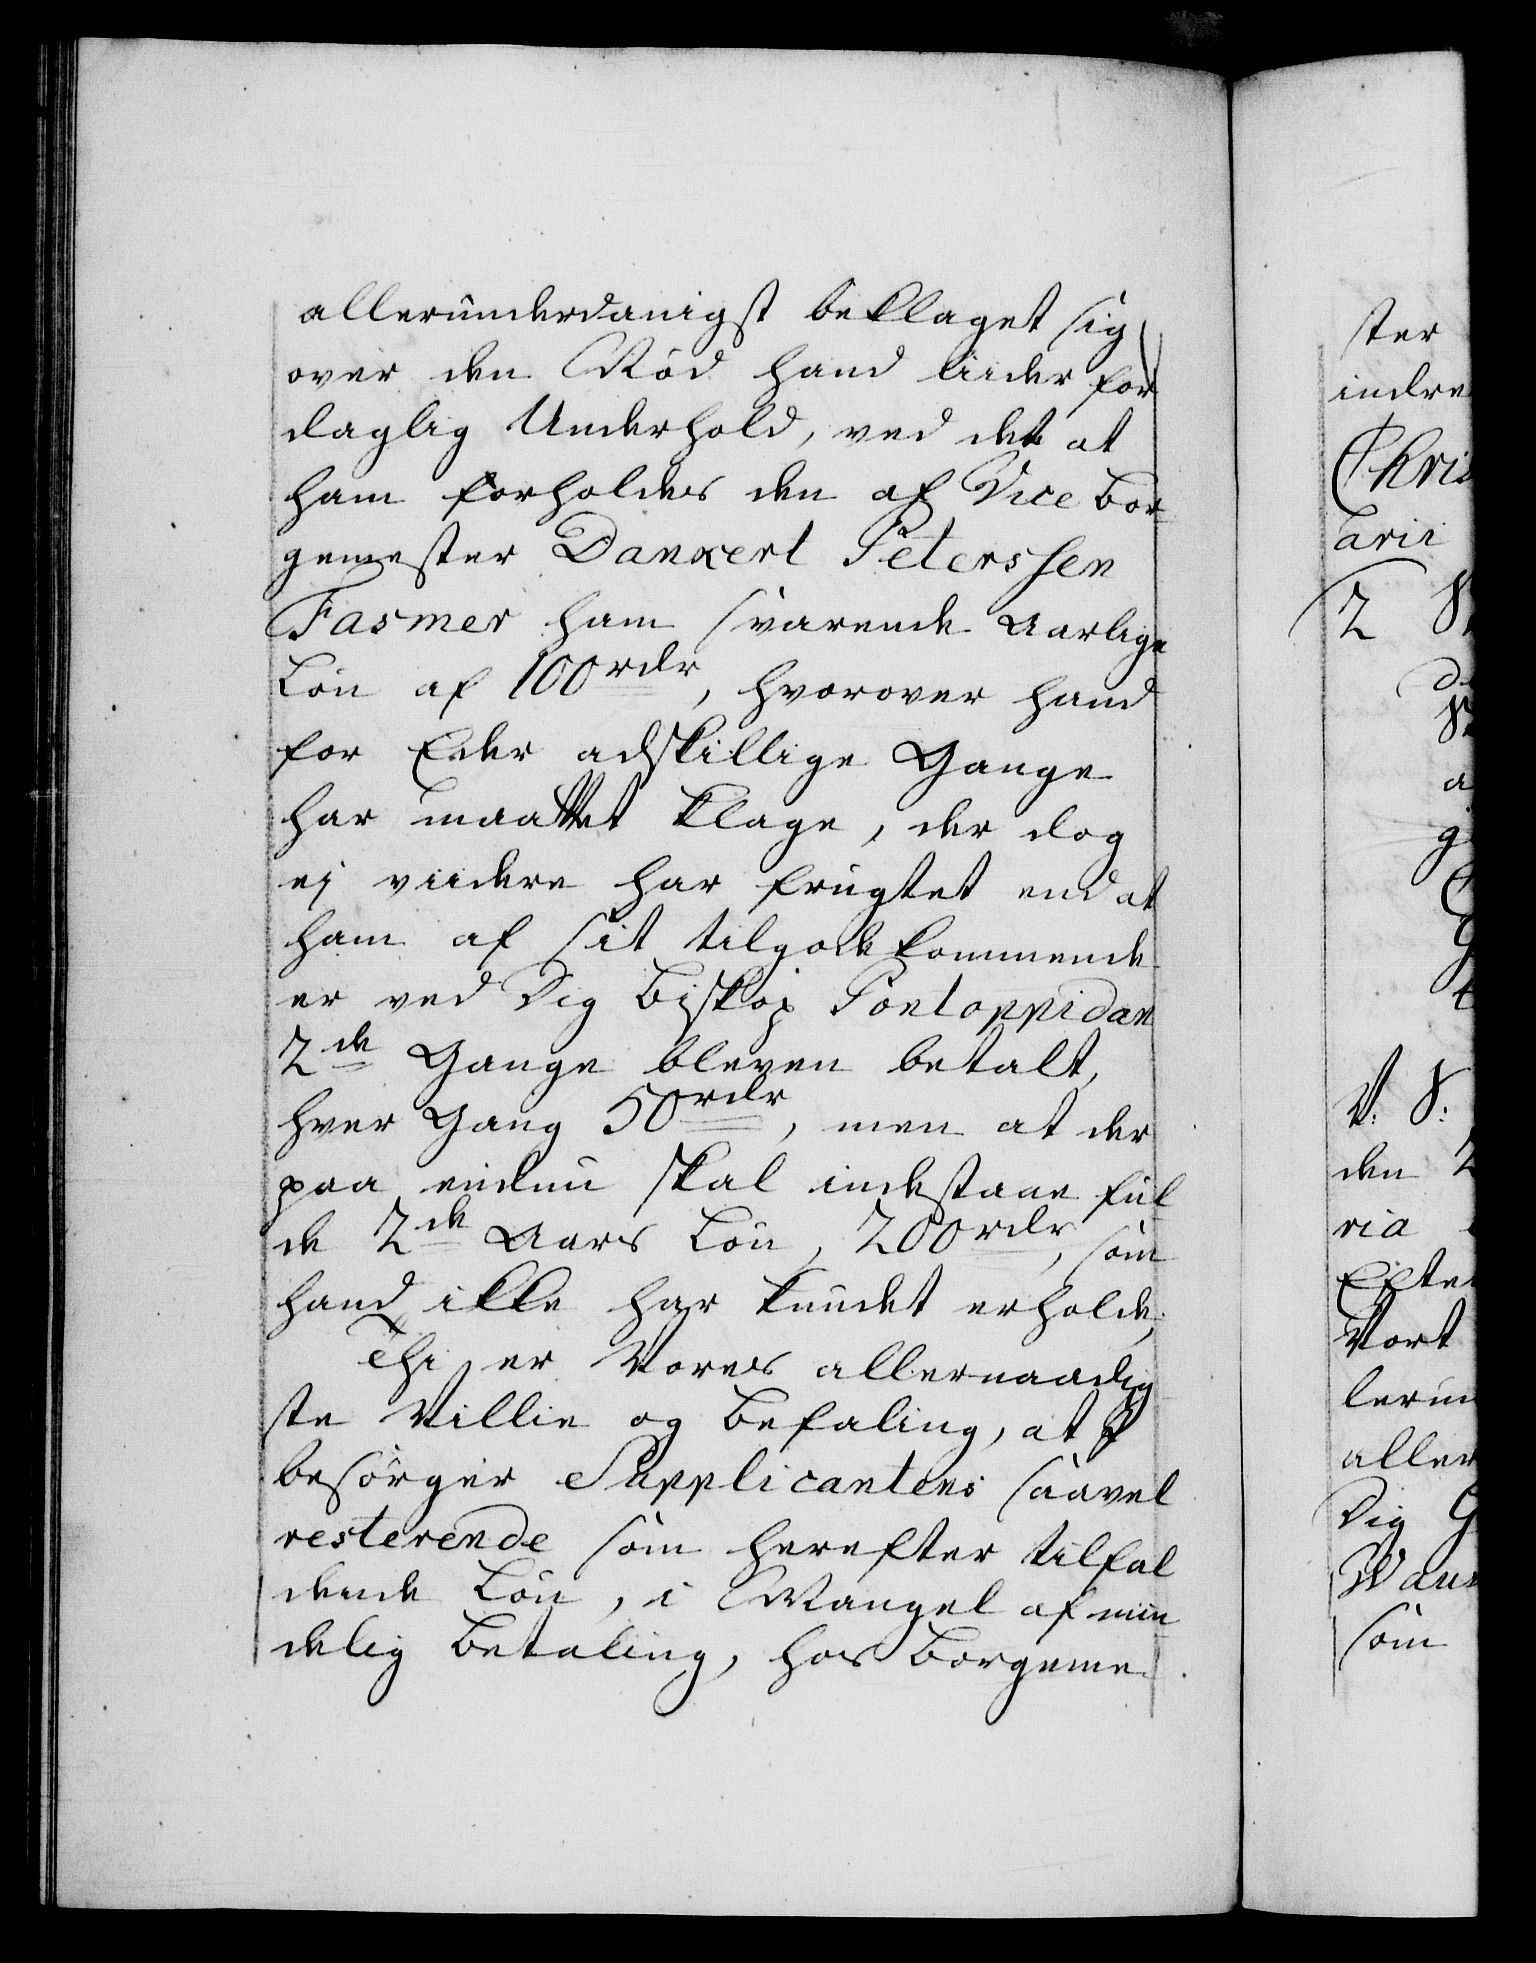 allerunderdanigst beklaget sig
over den Nød hand liider for
daglig Underhold, ved det at
ham forholdes den af Vice Bor
gemester Dankert Peterssen
Fasmer ham svarende Aarlige
Løn af 100 rdr, hvorover hand
for Eder adskillige Gange
har maattet klage, der dog
ej viidere har frugtet end at
ham af sit tilgodekommende
er ved Dig Biskop Pontoppidan
2de Gange bleven betalt,
hver Gang 50 rdr, men at der
paa endnu skal indestaae ful
de 2de Aars Løn, 200 rdr, som
hand ikke har kundet erholde;
Thi er Vores allernaadig
ste Villie og Befaling, at I
besørger Supplicantens saavel
resterende som herefter tilfal
dende Løn, i Mangel af min
delig Betaling, hos Borgeme
ster
indre
Chris
arii
2
den 2
ria
Efter
Vort
lerun
aller
Dig G
som